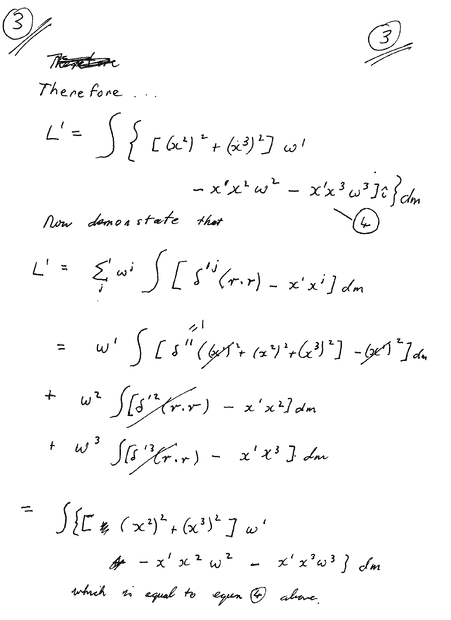 3
3
Therefore ...
L¹ = ∫ { [(x²)² + (x³)²] ω¹
− x¹x²ω² − x¹x³ω³] î } dm
4
Now demonstate that
L¹ = Σⱼ ωʲ ∫ [ δ¹ʲ (r.r) − x¹xʲ ] dm
=1
= ω¹ ∫ [ δ¹¹ ((x¹)² + (x²)² + (x³)²] − (x¹)² ] dm
+ ω² ∫ [δ¹² (r.r) − x¹x²] dm
+ ω³ ∫ [δ¹³ (r.r) − x¹x³] dm
= ∫ { [ (x²)² + (x³)² ] ω¹
− x¹x²ω² − x¹x³ω³ } dm
which is equal to equn 4 above.